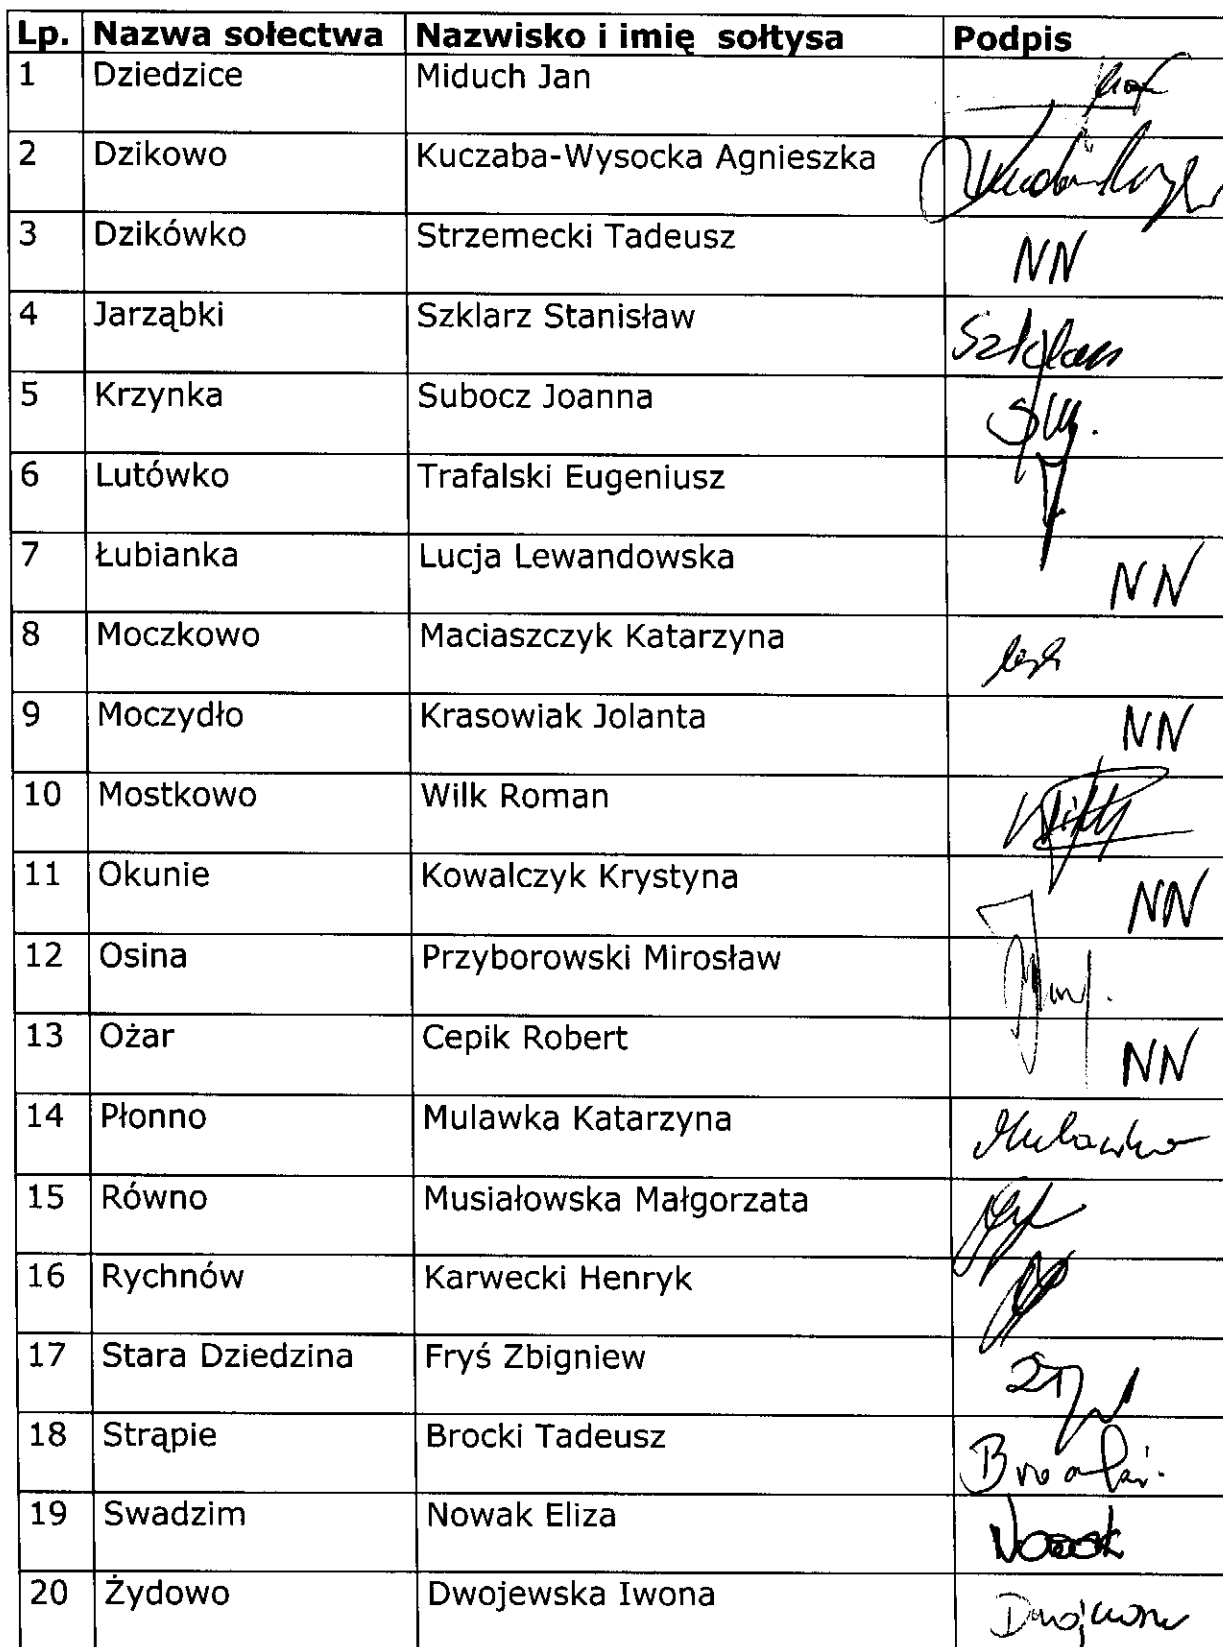 Lp. Nazwa sołectwa Nazwisko i imię sołtysa Podpis
1 Dziedzice Miduch Jan
2 Dzikowo Kuczaba-Wysocka Agnieszka
3 Dzikówko Strzemecki Tadeusz NN
4 Jarząbki Szklarz Stanisław
5 Krzynka Subocz Joanna
6 Lutówko Trafalski Eugeniusz
7 Łubianka Lucja Lewandowska NN
8 Moczkowo Maciaszczyk Katarzyna
9 Moczydło Krasowiak Jolanta NN
10 Mostkowo Wilk Roman
11 Okunie Kowalczyk Krystyna NN
12 Osina Przyborowski Mirosław
13 Ożar Cepik Robert NN
14 Płonno Mulawka Katarzyna Mulawka
15 Równo Musiałowska Małgorzata
16 Rychnów Karwecki Henryk
17 Stara Dziedzina Fryś Zbigniew
18 Strąpie Brocki Tadeusz
19 Swadzim Nowak Eliza Nowak
20 Żydowo Dwojewska Iwona